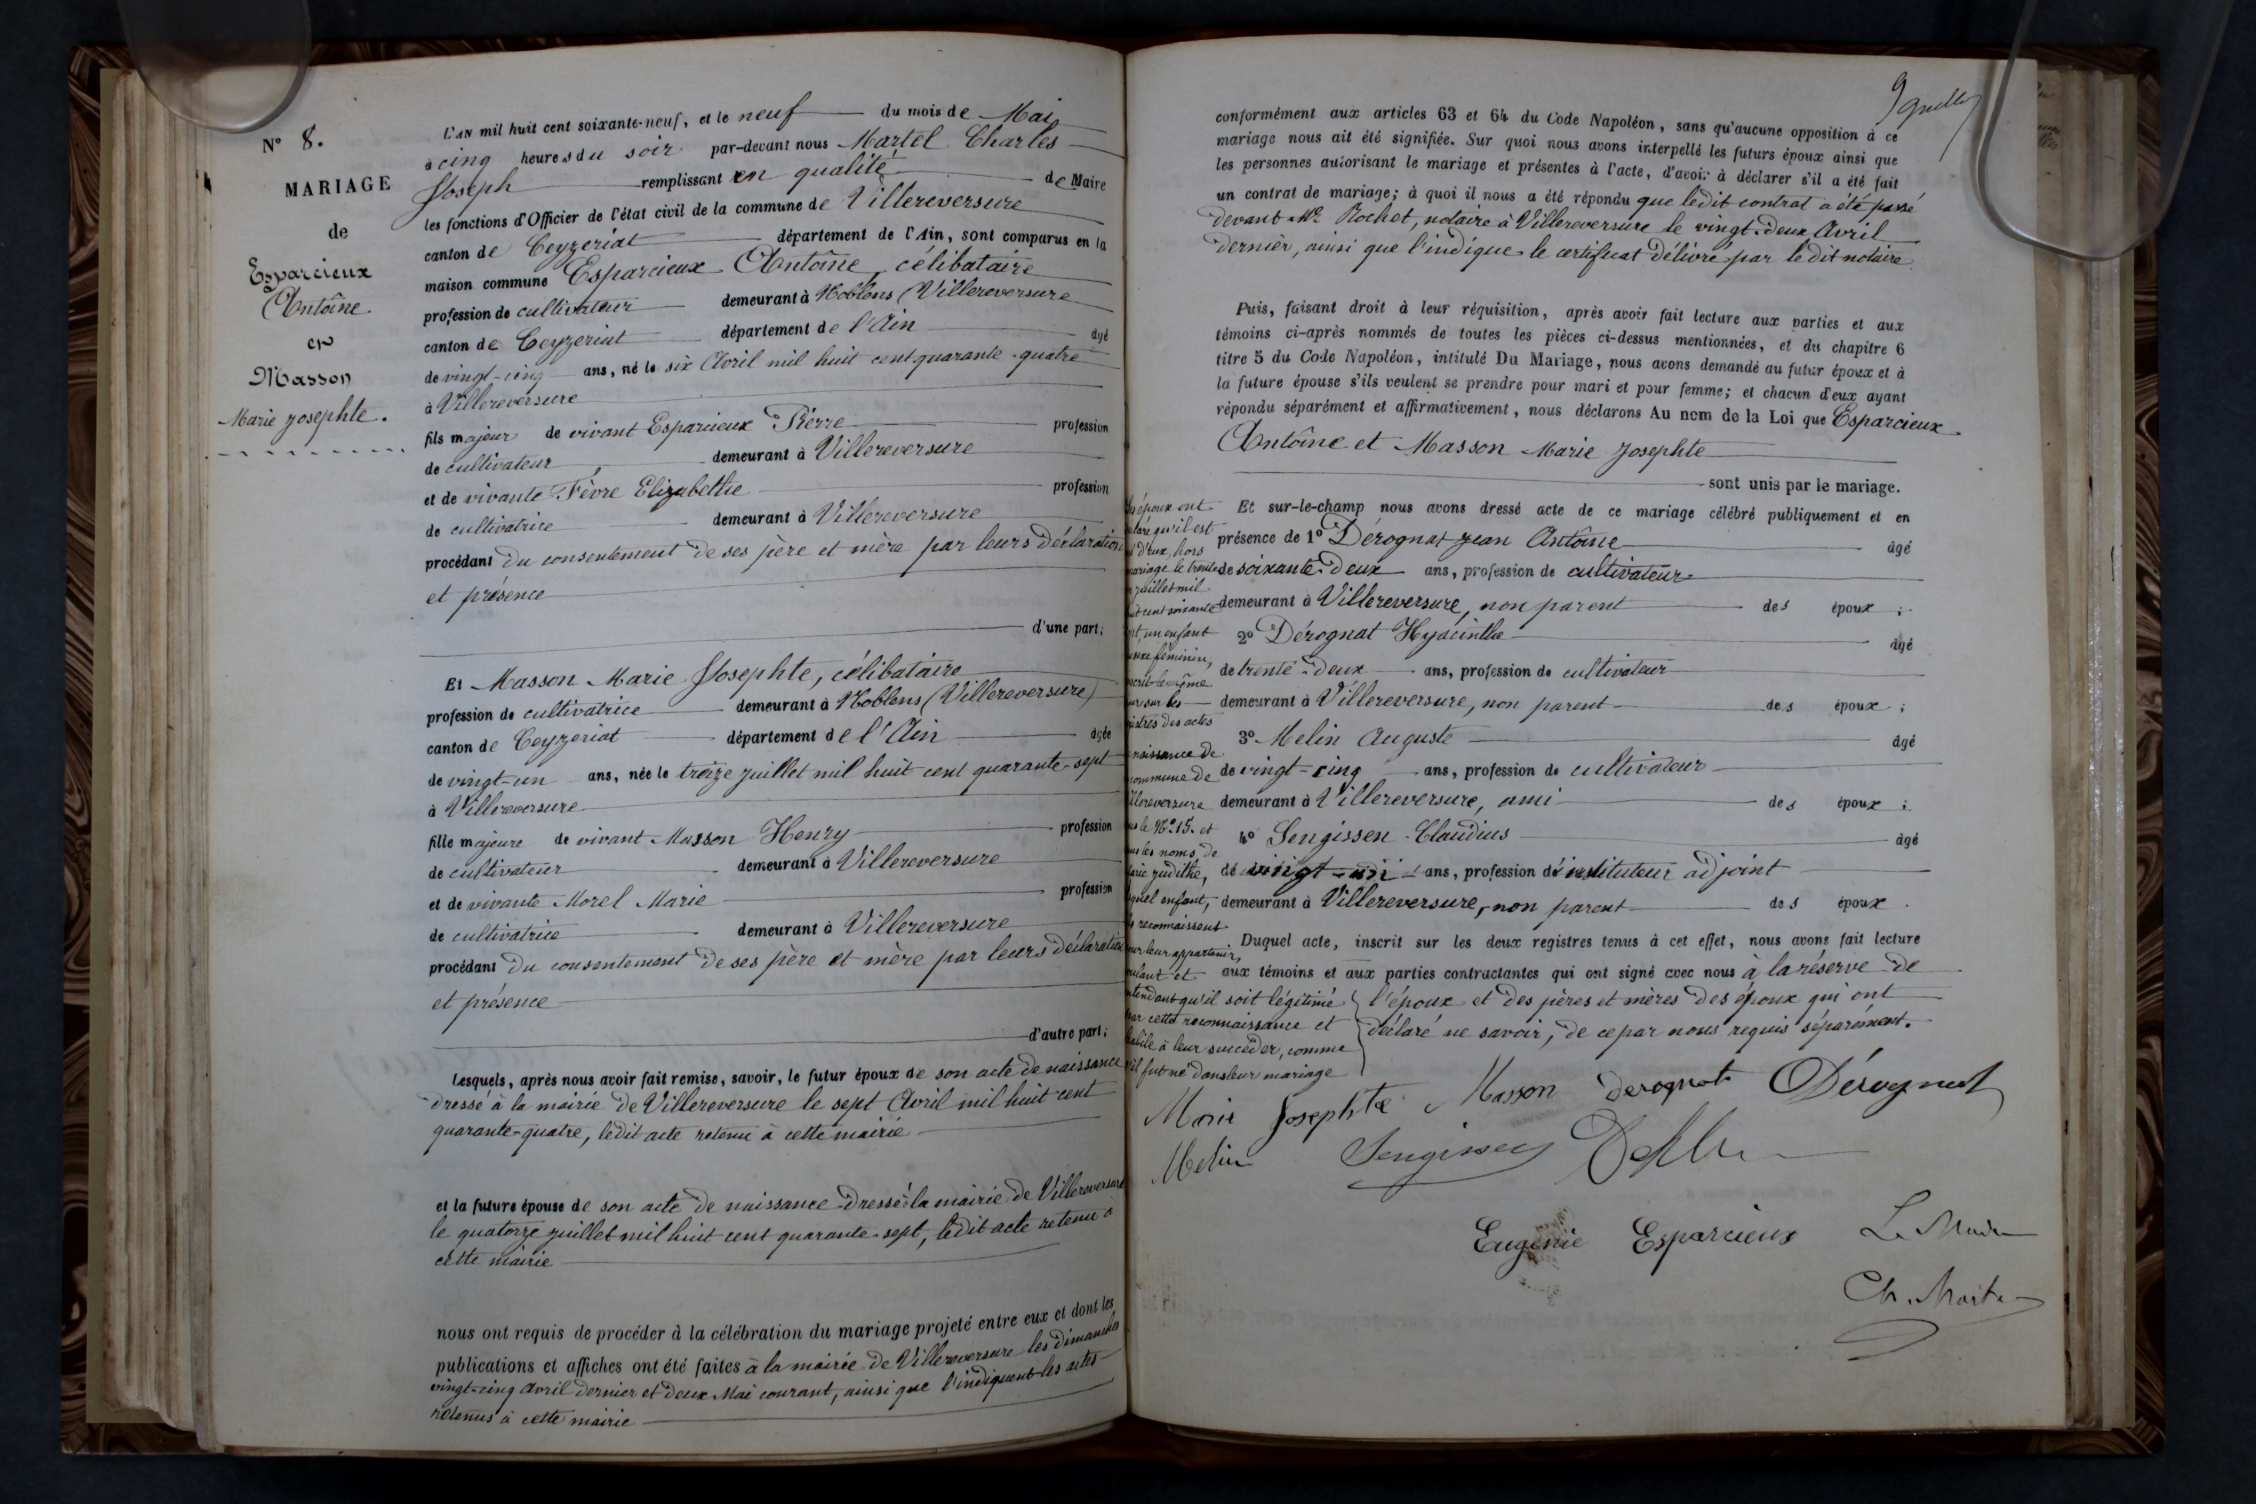 N° 8.
MARIAGE
de
Esparcieux
Antoîne
et
Masson
Marie Josephte.
L'AN mil huit cent soixante-neuf, et le neuf du mois de Mai
à cinq heures du soir par-devant nous Martel Charles
Joseph remplissant en qualité de Maire
les fonctions d'Officier de l'état civil de la commune de Villereversure
canton de Ceyzeriat département de l'Ain, sont comparus en la
maison commune Esparcieux Antoîne, célibataire
profession de cultivateur demeurant à Noblens (Villereversure
canton de Ceyzeriat département de l'Ain âgé
de vingt-cinq ans, né le six Avril mil huit cent quarante-quatre
à Villereversure
fils majeur de vivant Esparcieux Pierre profession
de cultivateur demeurant à Villereversure
et de vivante Fèvre Elizabethe profession
de cultivatrice demeurant à Villereversure
procédant du consentement de ses père et mère par leurs déclaration
et présence
d'une part;
Et Masson Marie Josephte, célibataire
profession de cultivatrice demeurant à Noblens (Villereversure)
canton de Ceyzeriat département de l'Ain âgée
de vingt-un ans, née le treize juillet mil huit cent quarante-sept
à Villereversure
fille majeure de vivant Masson Henry profession
de cultivateur demeurant à Villereversure
et de vivante Morel Marie profession
de cultivatrice demeurant à Villereversure
procédant du consentement de ses père et mère par leurs déclaration
et présence
d'autre part;
Lesquels, après nous avoir fait remise, savoir, le futur époux de son acte de naissance
dressé à la mairie de Villereversure le sept Avril mil huit cent
quarante-quatre, ledit acte retenu à cette mairie
et la future épouse de son acte de naissance dressé à la mairie de Villereversure
le quatorze juillet mil huit cent quarante-sept, ledit acte retenu à
cette mairie
nous ont requis de procéder à la célébration du mariage projeté entre eux et dont les
publications et affiches ont été faites à la mairie de Villereversure les dimanches
vingt-cinq avril dernier et deux Mai courant, ainsi que l'indiquent les actes
retenus à cette mairie
9
conformément aux articles 63 et 64 du Code Napoléon, sans qu'aucune opposition à ce
mariage nous ait été signifiée. Sur quoi nous avons interpellé les futurs époux ainsi que
les personnes autorisant le mariage et présentes à l'acte, d'avoir à déclarer s'il a été fait
un contrat de mariage; à quoi il nous a été répondu que ledit contrat a été passé
devant Me Rochet, notaire à Villereversure le vingt-deux Avril
dernier, ainsi que l'indique le certificat délivré par le dit notaire
Puis, faisant droit à leur réquisition, après avoir fait lecture aux parties et aux
témoins ci-après nommés de toutes les pièces ci-dessus mentionnées, et du chapitre 6
titre 5 du Code Napoléon, intitulé Du Mariage, nous avons demandé au futur époux et à
la future épouse s'ils veulent se prendre pour mari et pour femme; et chacun d'eux ayant
répondu séparément et affirmativement, nous déclarons Au nom de la Loi que Esparcieux
Antoîne et Masson Marie Josephte
sont unis par le mariage.
Et sur-le-champ nous avons dressé acte de ce mariage célébré publiquement et en
présence de 1° Dérognat Jean Antoîne âgé
de soixante-deux ans, profession de cultivateur
demeurant à Villereversure, non parent des époux;
2° Dérognat Hyacinthe âgé
de trente-deux ans, profession de cultivateur
demeurant à Villereversure, non parent des époux;
3° Melin Auguste âgé
de vingt-cinq ans, profession de cultivateur
demeurant à Villereversure, ami des époux;
4° Sengissen Claudius âgé
de vingt ans, profession d'instituteur adjoint
demeurant à Villereversure, non parent des époux.
Duquel acte, inscrit sur les deux registres tenus à cet effet, nous avons fait lecture
aux témoins et aux parties contractantes qui ont signé avec nous à la réserve de
l'époux et des pères et mères des époux qui ont
déclaré ne savoir, de ce par nous requis séparément.
époux ont
qu'il est
d'eux, hors
mariage le trente
juillet mil
cent soixante
un enfant
sexe féminin,
même
sur les
registres des actes
naissance de
commune de
Villereversure
le N° 15. et
les noms de
Marie Judithe,
lequel enfant,
reconnaissent
leur appartenir,
voulant et
entendant qu'il soit légitimé
par cette reconnaissance et
habile à leur succéder, comme
s'il fut né dans leur mariage
Marie Josephte Masson Derognat Dérognat
Melin Sengissen
Eugenie Esparcieux Le Maire
Ch. Martel